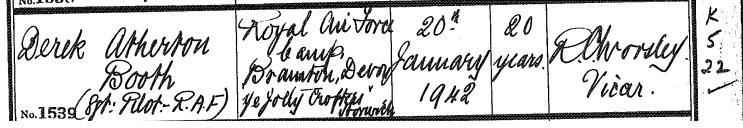 Derek Atherton
Booth
(Sgt: Pilot - R.A.F)
No. 1539
Royal Air Force
Camp,
Braunton, Devon
"Ye Jolly Crofters"
Horwich
20th
January
1942
20
years.
Vicar.
K
5
22